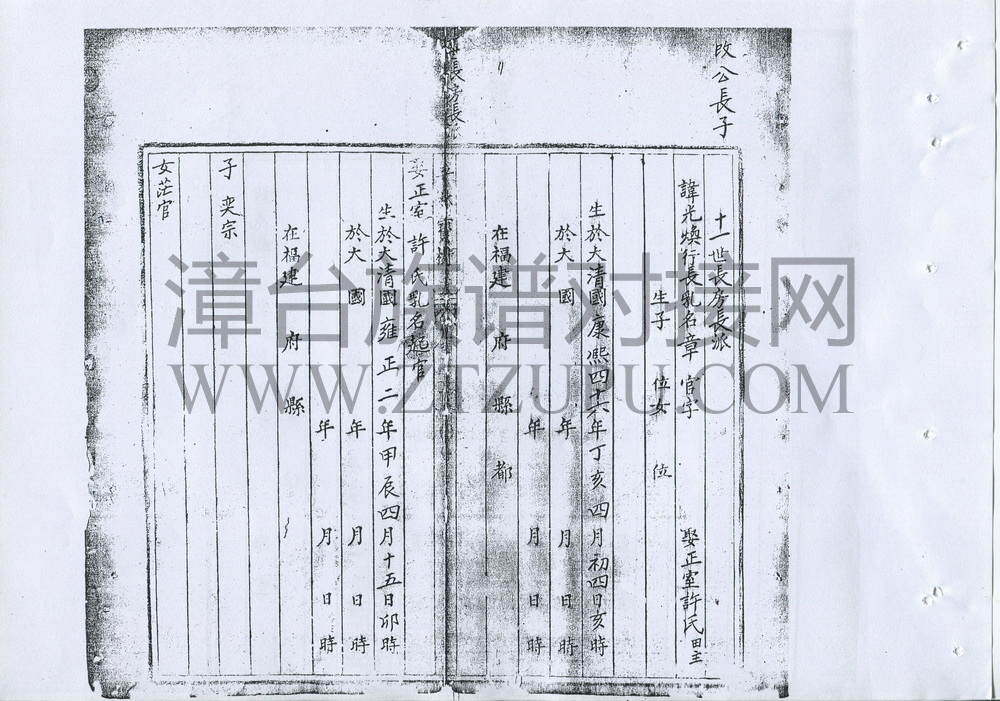 改公長子
十一世長房長派
諱光煥行長乳名章 官字 娶正室許氏
生子 位女 位
生於大清國康熙四十六年丁亥四月初四日亥時
於大 國 年 月 日 時
年 月 日 時
在福建 府 縣 都
長房長
娶正室 許氏乳名 官
生於大清國雍正二年甲辰四月十五日卯時
於大 國 年 月 日 時
年 月 日 時
在福建 府 縣
子 奕宗
女茫官
漳台族谱对接网
WWW.ZTZUPU.COM